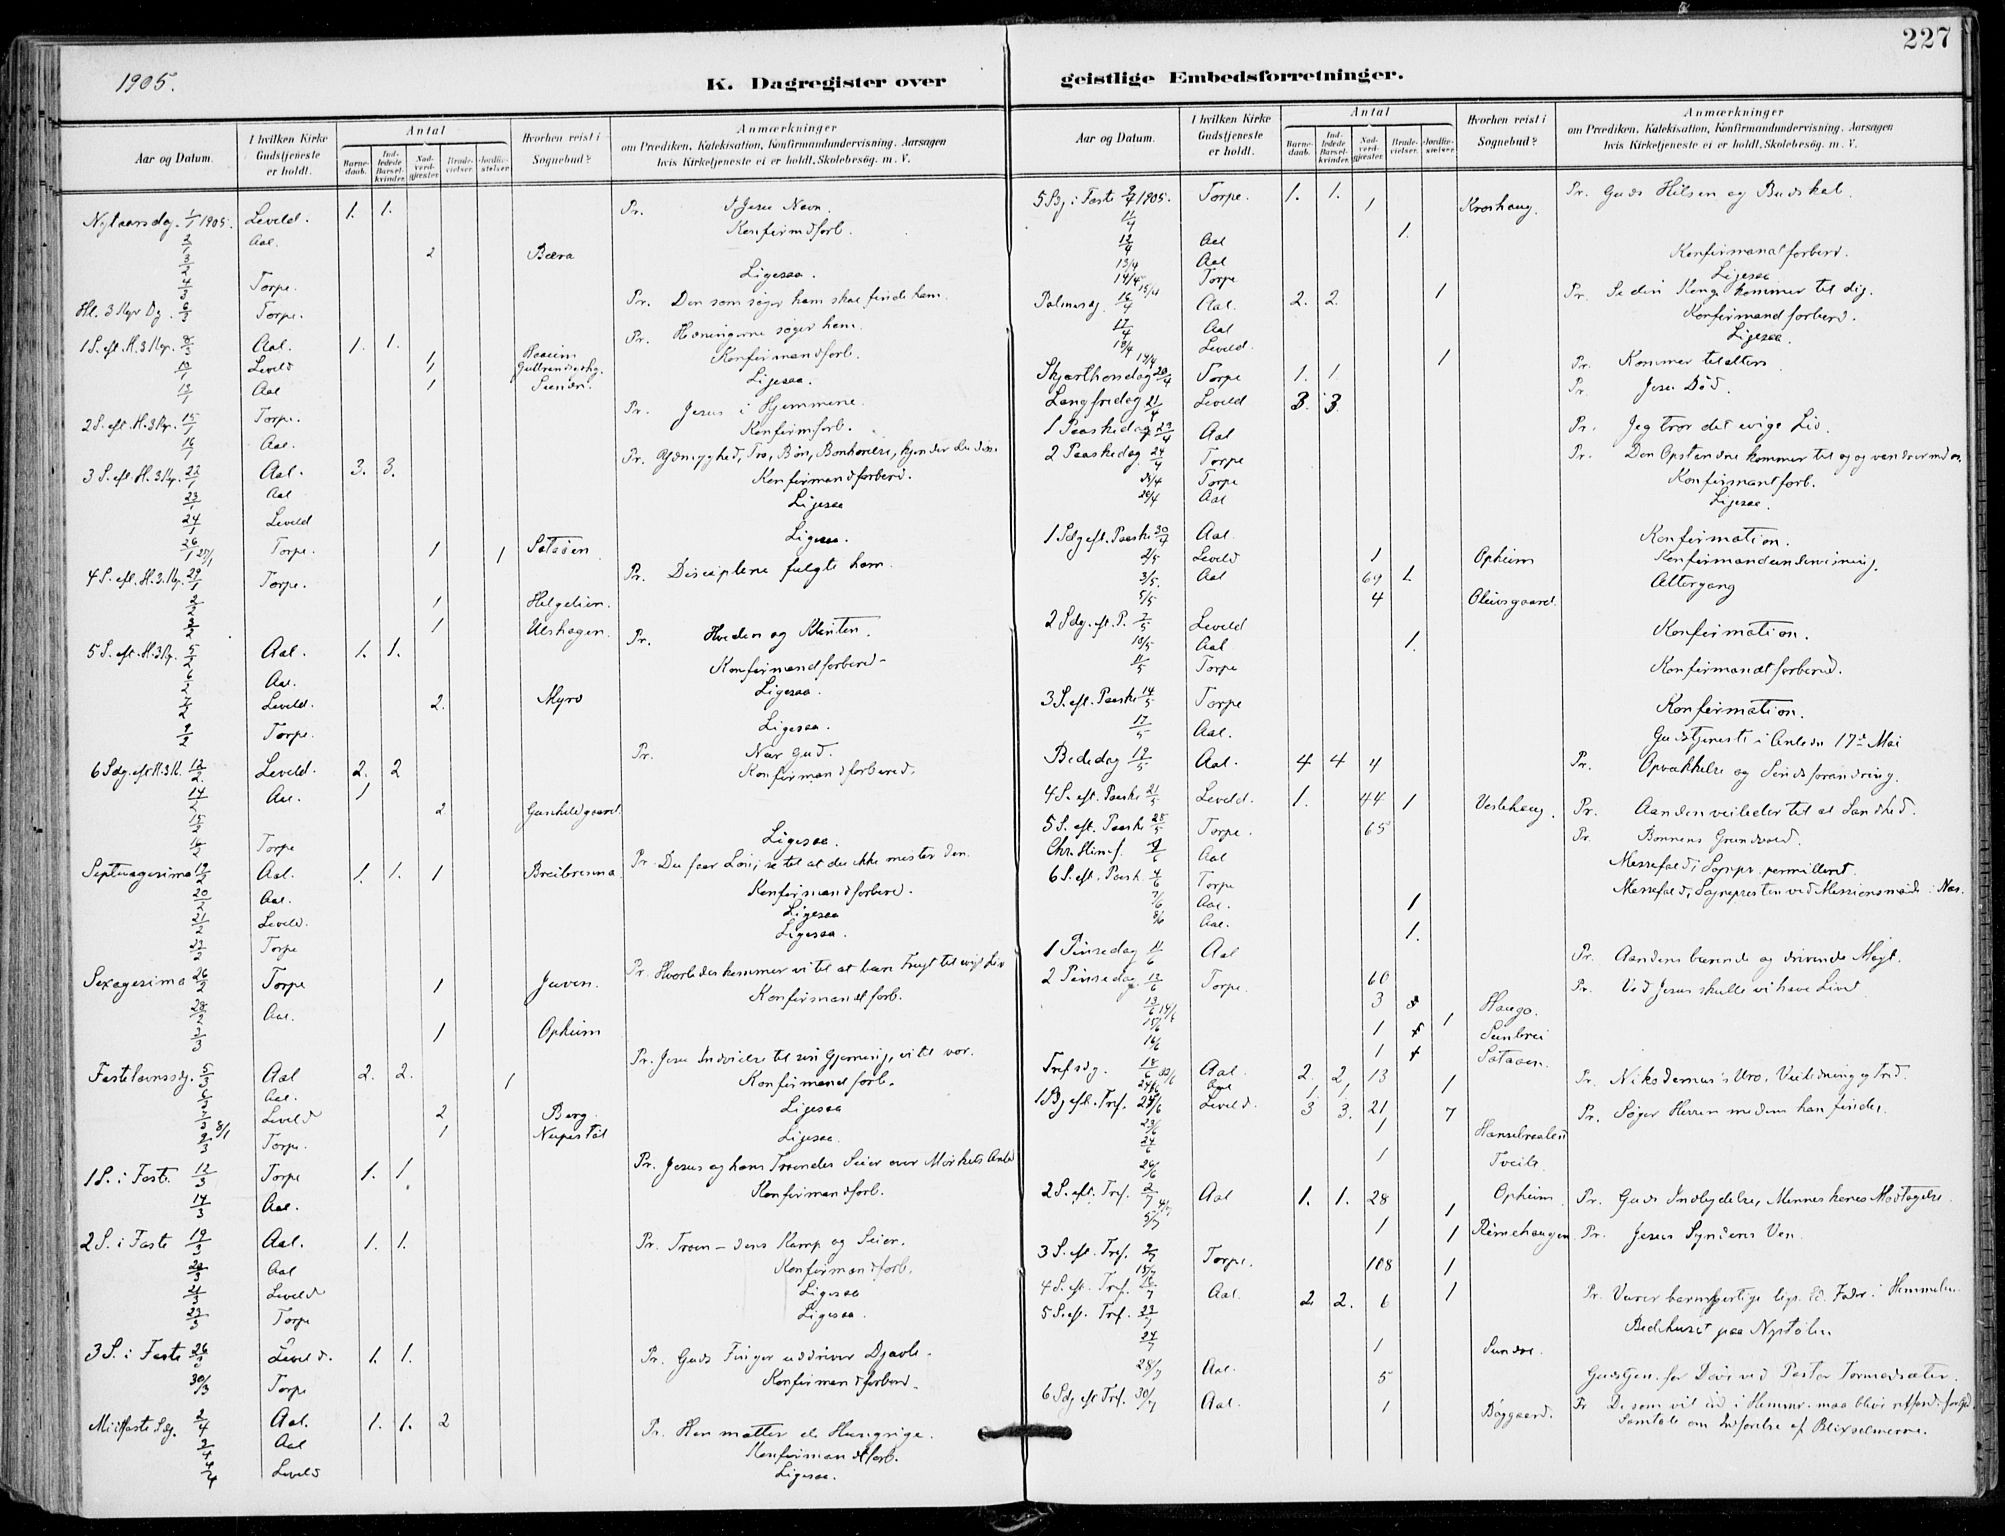 227
1905.
K. Dagregister over geistlige Embedsforretninger.
Aar og Datum.
I hvilken Kirke Gudstjeneste er holdt.
Antal
Barne-daab.
Ind-ledede Barsel-kvinder.
Nad-verd-gjæster.
Brude-vielser.
Jordfæ-stelser.
Hvorhen reist i Sognebud?
Anmærkninger
om Prædiken, Katekisation, Konfirmandundervisning, Aarsagen
hvis Kirketjeneste ei er holdt, Skolebesøg. m. V.
Nytaarsdag. 1/1 1905. Leveld. 1. 1. Pr. I Jesu Navn.
Aal. Konfirmdforb.
2 Bæra
Torpe. Ligesaa.
Hl. 3 Kgr Dg. Torpe. Pr. Den som søger ham skal finde ham.
1 S. eft. H. 3 Kgr. Aal. 1. 1. Pr. Hedningerne søger ham.
Leveld 1 Konfirmandforb.
Aal 1 Ligesaa.
2 S. eft. H. 3 Kgr. 15/1 Torpe. Pr. Jesus i Hjemmene.
16/1 Aal. Konfirmforb.
3 S. eft H. 3 Kgr. 22/1 Aal. 3. 3. Pr. Ydmyghed, Tro, Bøn, Bønhørelse, kjender du disse
23/1 Aal Konfirmandforbered.
24/1 Leveld Ligesaa
26/1 Torpe. 1 1 Sataøen Ligesaa.
4 S. eft. H. 3. Kgr. 29/1 Torpe. Pr. Disciplene fulgte ham.
2/2 1 Helgelien.
3/2 1 Ulshagen.
5 S. eft. H. 3 Kgr. 5/2 Aal. 1. 1. Pr. Hveden og Klinten.
6/2 Aal. Konfirmandforbered-
7/2 Leveld. 2. Myro Ligesaa.
9/2 Torpe. Ligesaa.
6 Sdg. eft H. 3 K. 12/2 Leveld. 2. 2 Pr. Nær Gud.
14/2 Aal. 1 Konfirmandforbered.
15/2 2 Gunhildgaard.
16/2 Torpe Ligesaa.
Septuagesima 19/2 Aal. 1. 1. 1 Breibrenna Pr. Du faar Løn, se til at du ikke mister den.
20/2 Aal. Konfirmandforbered.
21/2 Leveld. Ligesaa
23/2 Torpe Ligesaa.
Sexagesima 26/2 Torpe 1 Juven. Pr. Hvorledes kommer vi til at bære Frugt til evigt Liv
28/2 Aal. Konfirmandforb.
3/3 1 Opheim
Fastelavnssdg. 5/3 Aal 2. 2. 1 Pr. Jesu Indvielse til sin Gjerning, vi til vor.
6/3 Aal. Konfirmandforb.
7/3 Leveld 2 Berg. Ligesaa
9/3 Torpe. 1 Nupestøl Ligesaa.
1 S. i Faste. 12/3 Torpe 1. 1. Pr. Jesus og hans Troendes Seier over Mørkets Aand
14/3 Aal. Konfirmandforb.
2 S. i Faste 19/3 Aal. 1. 1. Pr. Troen - dens Kamp og Seier.
20/3 Aal Konfirmandforb.
21/3 Leveld Ligesaa
23/3 Torpe Ligesaa.
3 S. i Faste 26/3 Leveld. 1. 1. Pr. Guds Finger uddriver Djævle.
30/3 Torpe Konfirmandforbered.
Midfaste Sdg. 2/4 Aal. 1. 1. 2 Pr. Han mætter de Hungrige.
3/4 Aal Konfirmandforb.
4/4 Leveld Ligesaa.
Aar og Datum.
I hvilken Kirke Gudstjeneste er holdt.
Antal
Barne-daab.
Ind-ledede Barsel-kvinder.
Nad-verd-gjæster.
Brude-vielser.
Jordfæ-stelser.
Hvorhen reist i Sognebud?
Anmærkninger
om Prædiken, Katekisation, Konfirmandundervisning, Aarsagen
hvis Kirketjeneste ei er holdt, Skolebesøg. m. V.
5 Sg. i Faste 9/4 1905. Torpe. 1. 1. Pr. Guds Hilsen og Budskab.
11/4 1 Kroshaug.
12/4 Aal 1.
13/4 Aal Konfirmandforberd.
14/4 Torpe Ligesaa
Palmesdg. 16/4 Aal. 2. 2. 1 Pr. Se din Konge kommer til dig.
17/4 Aal Konfirmandforberd.
18/4 Leveld. Ligesaa.
Skjærthorsdag 20/4 Torpe 1. 1 1 Pr. Kommer til alters
Langfredag 21/4 Leveld 3. 3. Pr. Jesu Død.
1 Paaskedag 23/4 Aal Pr. Jeg tror det evige Liv.
2 Paaskedag. 24/4 Torpe Pr. Den Opstandne kommer til os og vandrer med os.
Torpe Konfirmantforb.
Aal Ligesaa.
1 Sdg eft. Paaske 30/4 Aal. Konfirmation.
2/5 Leveld 1 Opheim Konfirmandundervisning.
3/5. Aal 69 1. Altergang
5/5 4 Oleivsgaard.
2 Sdg. eft. P. 7/5 Leveld Konfirmation.
10/5 Aal 1.
11/5 Torpe Konfirmandtforbered.
3 S. eft. Paaske 14/5 Torpe Konfirmation.
17/5 Aal. Gudstjeneste i Anledn 17de Mai
Bededag 19/5 Aal. 4 4 4 Pr. Opvækkelse og Sindsforandring.
4 S. eft. Paaske 21/5 Leveld. 1. 44 1 Veslehaug. Pr. Aanden veileder til al Sandhed.
5 S. eft. Paaske 28/5 Torpe. 65 Pr. Bønnens Grundvold.
Chr. Himf. 1/6 Aal Messefald, Sognpr. permitteret.
6 S. eft. Paask. 4/6 Torpe Messefald, Sognepresten ved Missionsmøde i Næs.
7/6 Aal. 1
8/6 Aal. 1.
1 Pinsedag 11/6 Aal Pr. Aandens bærende og drivende Magt.
2 Pinsedag. 12/6 Torpe. 60 Pr. Ved Jesus skulle vi have Livet
13/6 3 Haugo.
15/6 1 1 Sunbrei
16/6 1 Sataøen.
Trefsdg. 18/6 Aal. 2. 2. 13 Pr. Nikodemus's Uro, Veiledning og Fred.
1 Sg eft. Tref. 25/6 Leveld. 3 3. 21 7 Pr. Søger Herren medens han findes.
1
1 Tveite.
26/6
2 S. eft. Tref. 2/7 Aal 1. 1. 28 1 Opheim Pr. Guds Indbydelse, Menneskenes Modtagelse.
5/7 1 1 Rimehaugen
3 S. eft. Tref. 9/7 Torpe. 108 1 Pr. Jesus Synderens Ven.
4 S. eft. Tref. 16/7 Aal. 2 2. 6 1 Pr. Værer barmhjertige lige. Ed. Fader i Himmelen.
5 S. eft. Tref. 23/7 Bedehuset paa Nystølen
27/7 1 Sundre.
28/7 Aal. 5 Gudstjen. for Døve ved Pastor Tormodsæter.
6 Sdg eft Tref. 30/7 Aal. 1 Bøygaard. Pr De som vil ind i Himmr. maa blive
Samtale om Indførelse af Blixsalmerne.